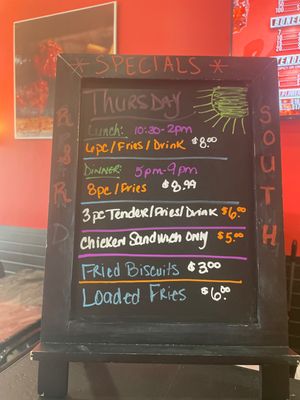 * SPECIALS *
THURSDAY
LUNCH: 10:30-2pm
4pc/Fries/Drink $8.00
DINNER: 5pm-9pm
8pc/Fries $8.99
3pc Tender/Fries/Drink $6.00
Chicken Sandwich Only $5.00
Fried Biscuits $3.00
Loaded Fries $6.00
SOUTH